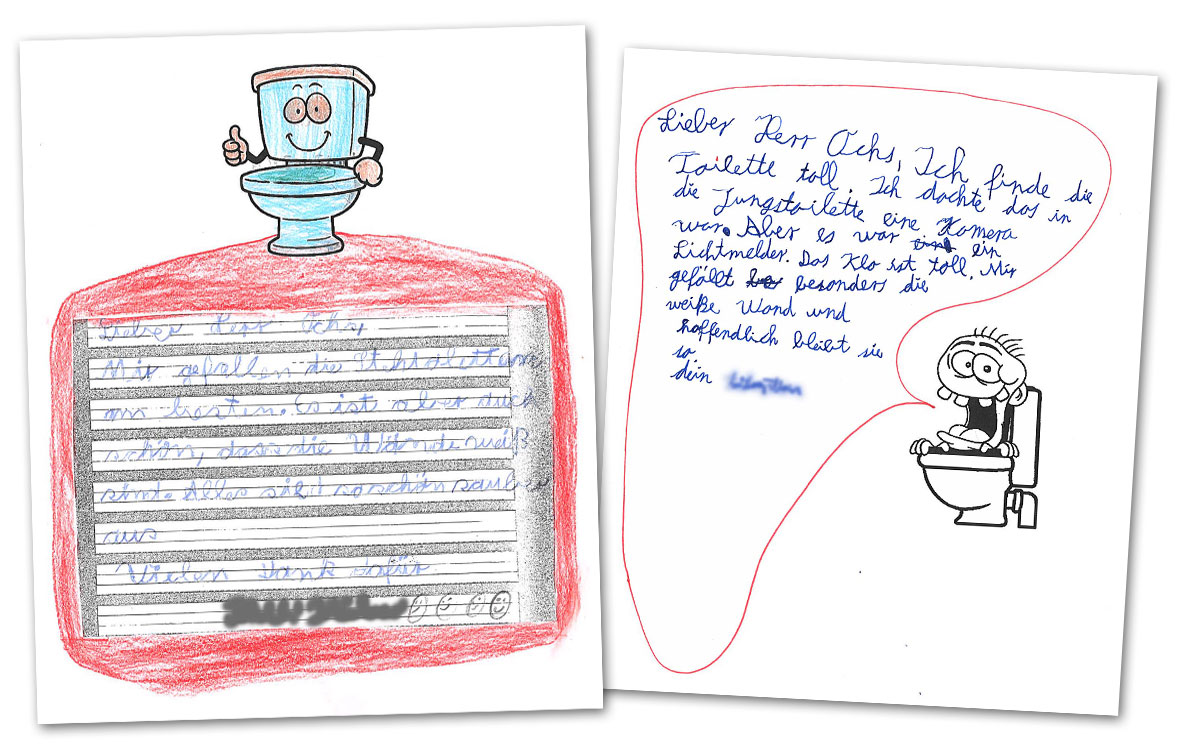 Lieber Herr Ochs,
Mir gefallen die
am besten. Es ist aber auch
schön, dass die Wände weiß
sind. Alles so schön sauber
aus
Vielen Dank dafür
Lieber Herr Ochs, Ich finde die
Toilette toll. Ich dachte das in
die Jungstoilette eine Kamera
war. Aber es war ein
Lichtmelder. Das Klo ist toll. Mir
gefällt besonders die
weiße Wand und
hoffendlich bleibt sie
so,
dein